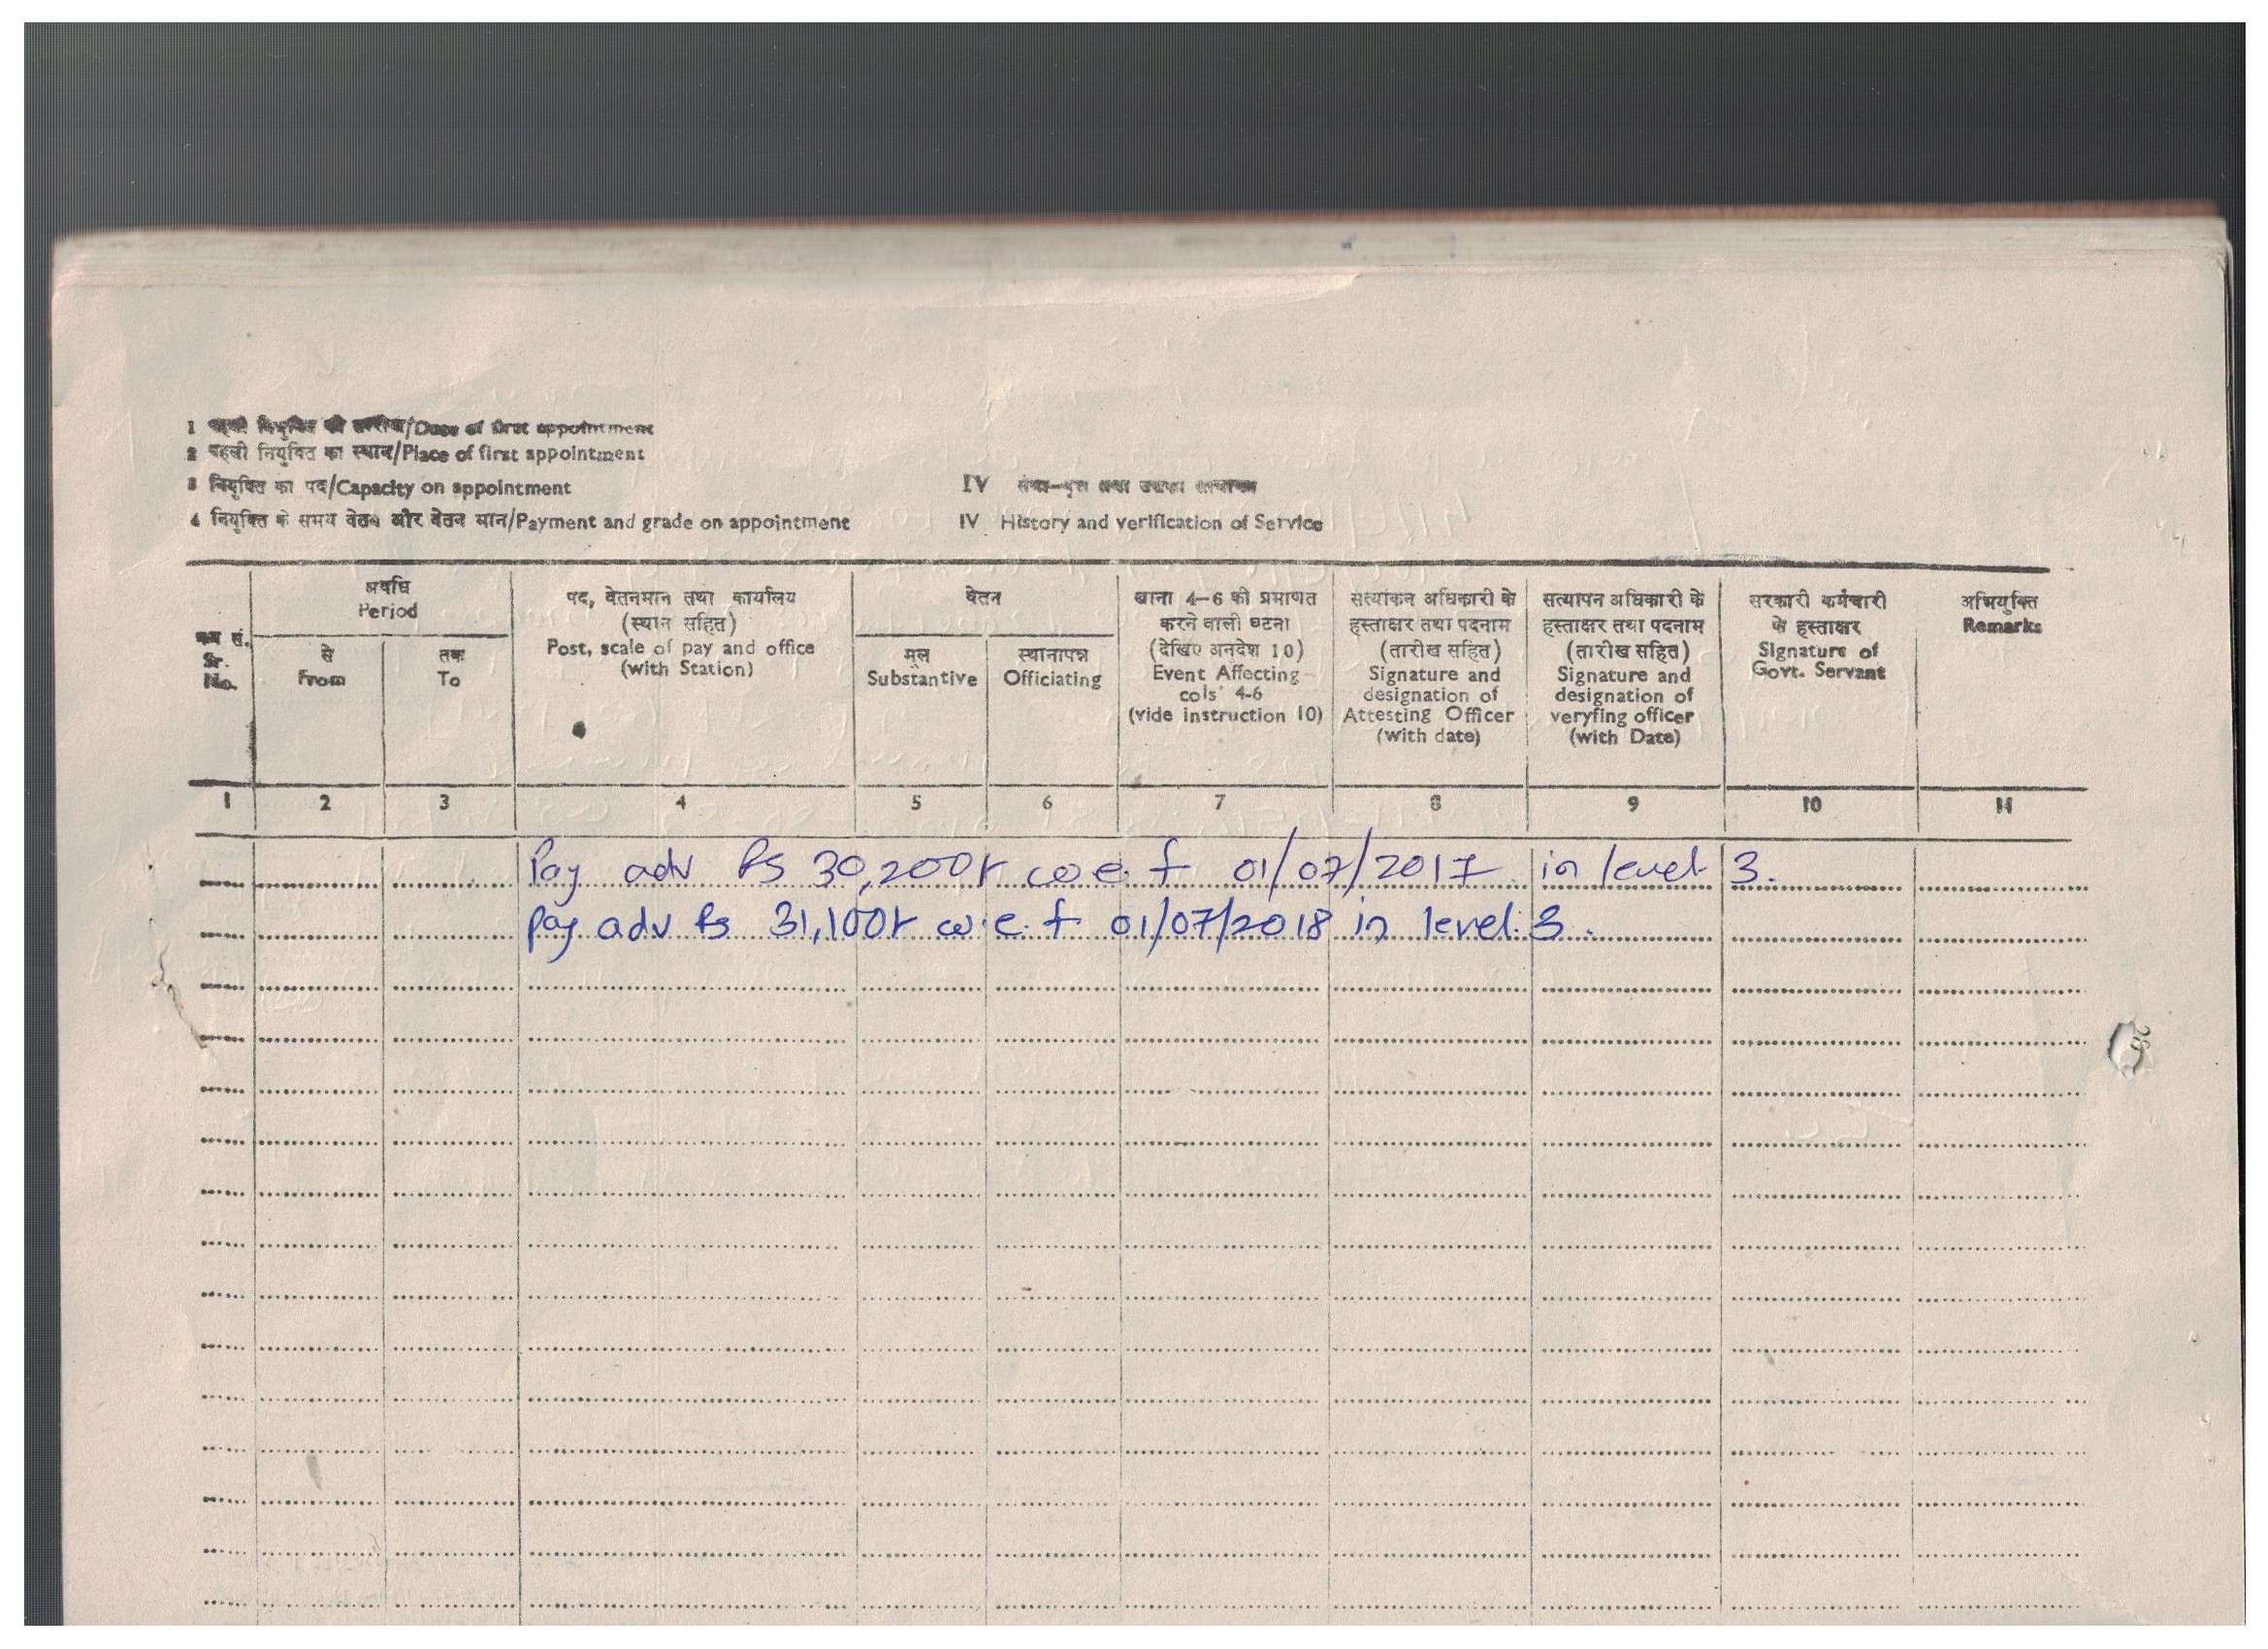 1 पहली नियुक्ति की तारीख/Date of first appointment
2 पहली नियुक्ति का स्थान/Place of first appointment
3 नियुक्ति का पद/Capacity on appointment
IV सेवा-वृत्त तथा उसका सत्यापन
4 नियुक्ति के समय वेतन और वेतन मान/Payment and grade on appointment
IV History and verification of Service
क्रम सं.
Sr.
No.
अवधि
Period
से
From
तक
To
पद, वेतनमान तथा कार्यालय
(स्थान सहित)
Post, scale of pay and office
(with Station)
वेतन
मूल
Substantive
स्थानापन्न
Officiating
खाना 4-6 को प्रमाणत
करने वाली घटना
(देखिए अनदेश 10)
Event Affecting
cols' 4-6
(vide instruction 10)
सत्यांकन अधिकारी के
हस्ताक्षर तथा पदनाम
(तारीख सहित)
Signature and
designation of
Attesting Officer
(with date)
सत्यापन अधिकारी के
हस्ताक्षर तथा पदनाम
(तारीख सहित)
Signature and
designation of
veryfing officer
(with Date)
सरकारी कर्मचारी
के हस्ताक्षर
Signature of
Govt. Servant
अभियुक्ति
Remarks
1 2 3 4 5 6 7 8 9 10 11
Pay adv Rs 30,200/- w.e.f 01/07/2017 in level 3.
Pay adv Rs 31,100/- w.e.f 01/07/2018 in level 3.